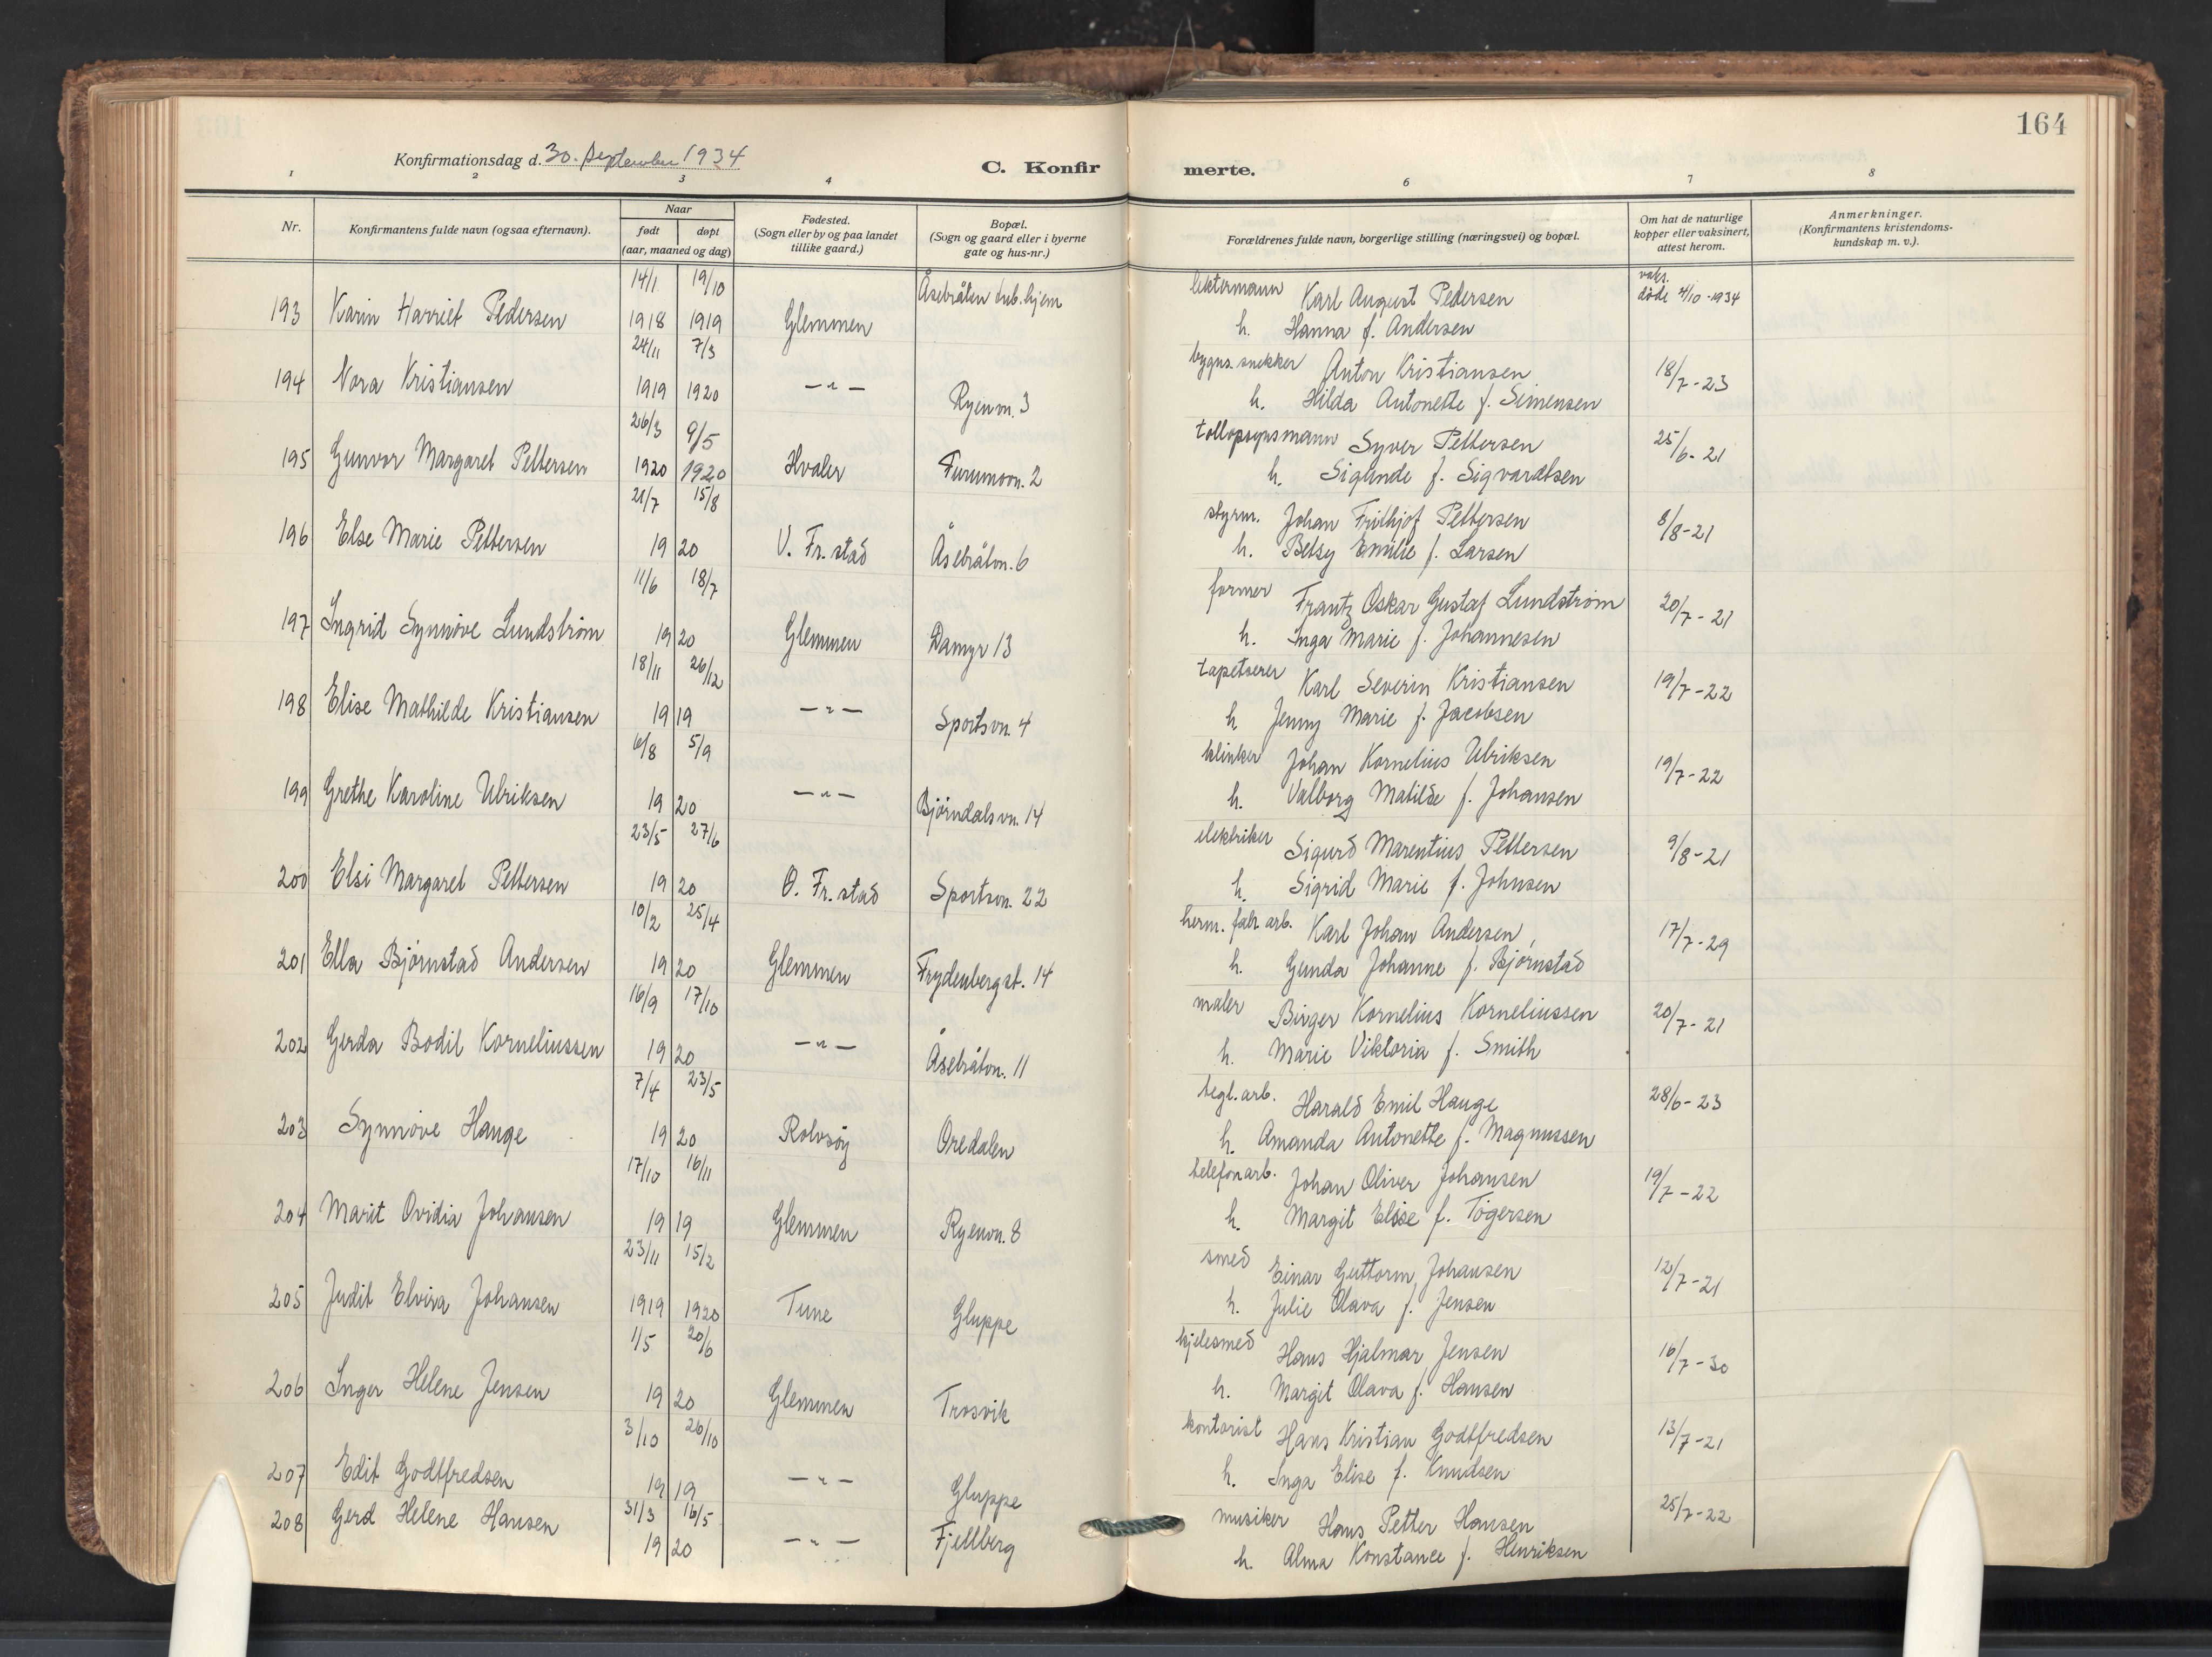 164
Konfirmationsdag d. 30. september 1934
C. Konfirmerte.
1 2 3 4 6 7 8
Nr.
Konfirmantens fulde navn (ogsaa efternavn).
Naar
født døpt
(aar, maaned og dag)
Fødested.
(Sogn eller by og paa landet
tillike gaard.)
Bopæl.
(Sogn og gaard eller i byerne
gate og hus-nr.)
Forældrenes fulde navn, borgerlige stilling (næringsvei) og bopæl.
Om hat de naturlige
kopper eller vaksinert,
attest herom.
Anmerkninger.
(Konfirmantens kristendoms-
kundskap m. v.).
14/1 19/10 Åsebråten hjem Karl August Pedersen vaks.
193 Karin Harriet Pedersen 1918 1919 Glemmen h. Hanna f. Andersen døde 4/10-1934
24/11 7/3 bygns.snekker Anton Kristiansen 18/7-23
194 Nora Kristiansen 1919 1920 —"— Ryenvn. 3 h. Hilda Antonette f. Simensen
26/3 9/5 tollopsynsmann Syver Pettersen 25/6-21
195 Gunvor Margaret Pettersen 1920 1920 Hvaler Furumovn. 2 h. f. Sigvardtsen
21/7 15/8 styrm. Johan Frithjof Pettersen 8/8-21
196 Else Marie Pettersen 1920 V. Fr.stad Åsebråtvn. 6 h. Betsy Emilie f. Larsen
11/6 18/7 former Frantz Oskar Gustaf Lundstrøm 20/7-21
197 Ingrid Synnøve Lundstrøm 1920 Glemmen Damyr 13 h. Inga Marie f. Johannesen
18/11 26/12 tapetserer Karl Severin Kristiansen 19/7-22
198 Elise Mathilde Kristiansen 1919 —"— Sportsvn. 4 h. Jenny Marie f. Jacobsen
6/8 5/9 klinker Johan Kornelius Ulriksen 19/7-22
199 Grethe Karoline Ulriksen 1920 —"— Bjørndalsvn. 14 h. Valborg Matilde f. Johansen
23/5 27/6 elektriker Sigurd Marentius Pettersen 9/8-21
200 Elsi Margaret Pettersen 1920 Ø. Fr.stad Sportsvn. 22 h. Sigrid Marie f. Johnsen
10/2 25/4 herm. fabr. arb. Karl Johan Andersen, 17/7-29
201 Ella Bjørnstad Andersen 1920 Glemmen Frydenbergst. 14 h. Gunda Johanne f. Bjørnstad
16/9 17/10 maler Birger Kornelius Korneliussen 20/7-21
202 Gerda Bodil Korneliussen 1920 —"— Åsebråtvn. 11 h. Marie Viktoria f. Smith
7/4 23/5 tegl.arb. Harald Emil Hauge 28/6-23
203 Synnøve Hauge 1920 Rolvsøy Oredalen h. Amanda Antonette f. Magnussen
17/10 16/11 telefonarb. Johan Oliver Johansen 19/7-22
204 Marit Ovidia Johansen 1919 Glemmen Ryenvn. 8 h. Margit Elise f. Tøgersen
23/11 15/2 smed Einar Guttorm Johansen 12/7-21
205 Judit Elvira Johansen 1919 1920 Tune Gluppe h. Julie Olava f. Jensen
1/5 20/6 kjelesmed Hans Hjalmar Jensen 16/7-30
206 Inger Helene Jensen 1920 Glemmen Trosvik h. Margit Olava f. Hansen
3/10 26/10 kontorist Hans Kristian Godtfredsen 13/7-21
207 Edit Godtfredsen 1919 —"— Gluppe h. Inga Elise f. Knudsen
31/3 16/5 musiker Hans Petter Hansen 25/7-22
208 Gerd Helene Hansen 1920 —"— Fjellberg h. Alma Konstance f. Henriksen